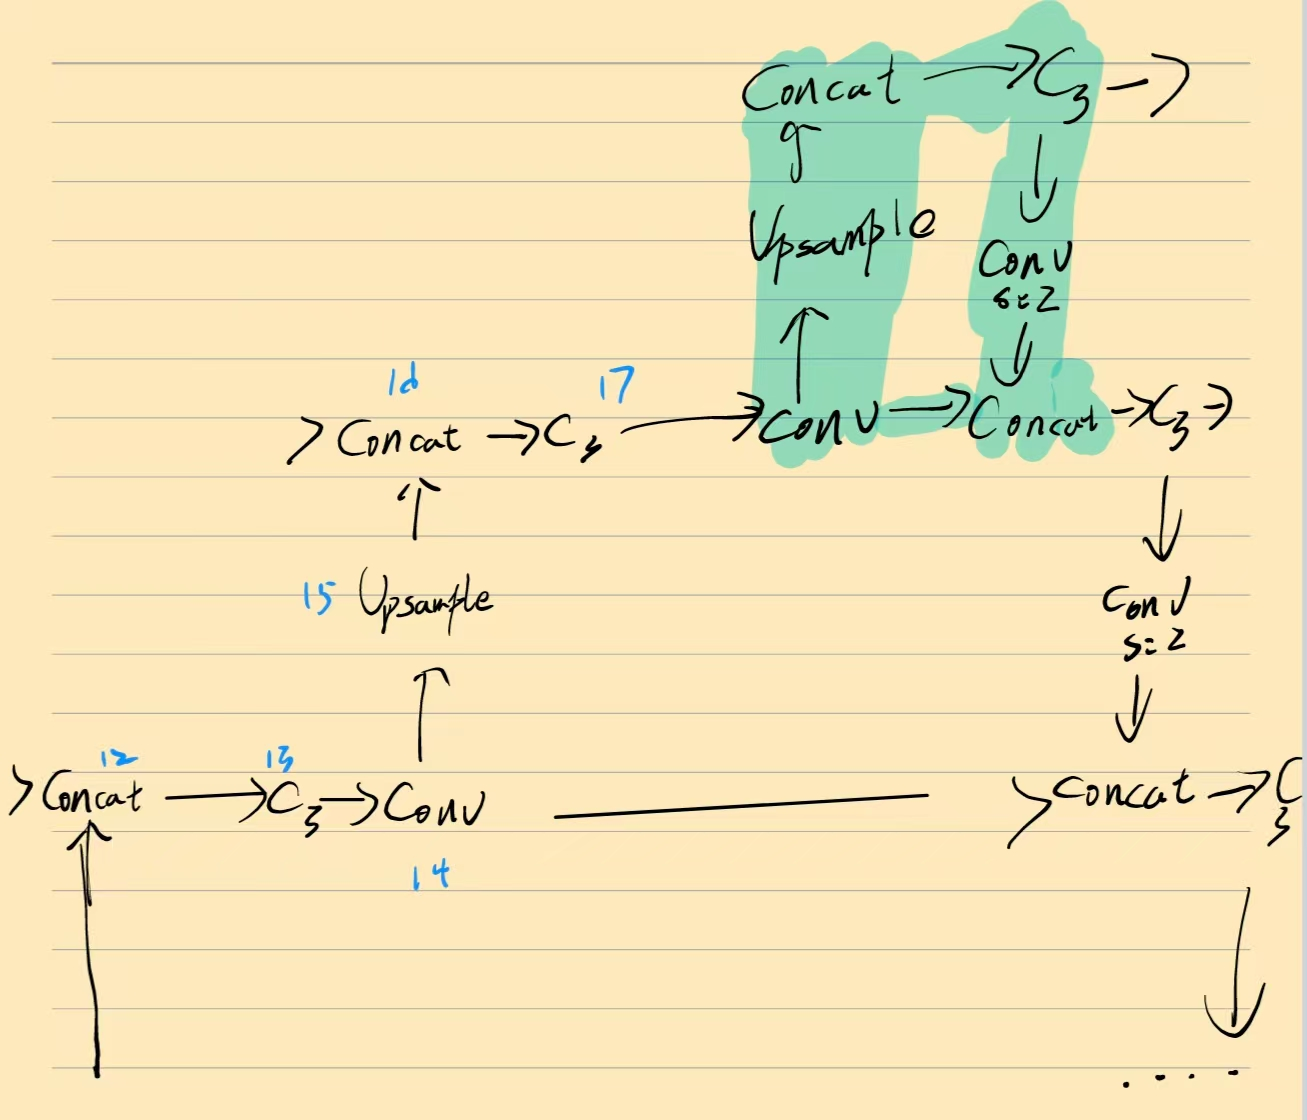 Concat C3
Upsample
Conv
s=2
16 17
Concat C3 Conv Concat C3
15 Upsample
Conv
s=2
12 13
Concat C3 Conv Concat C3
14
....